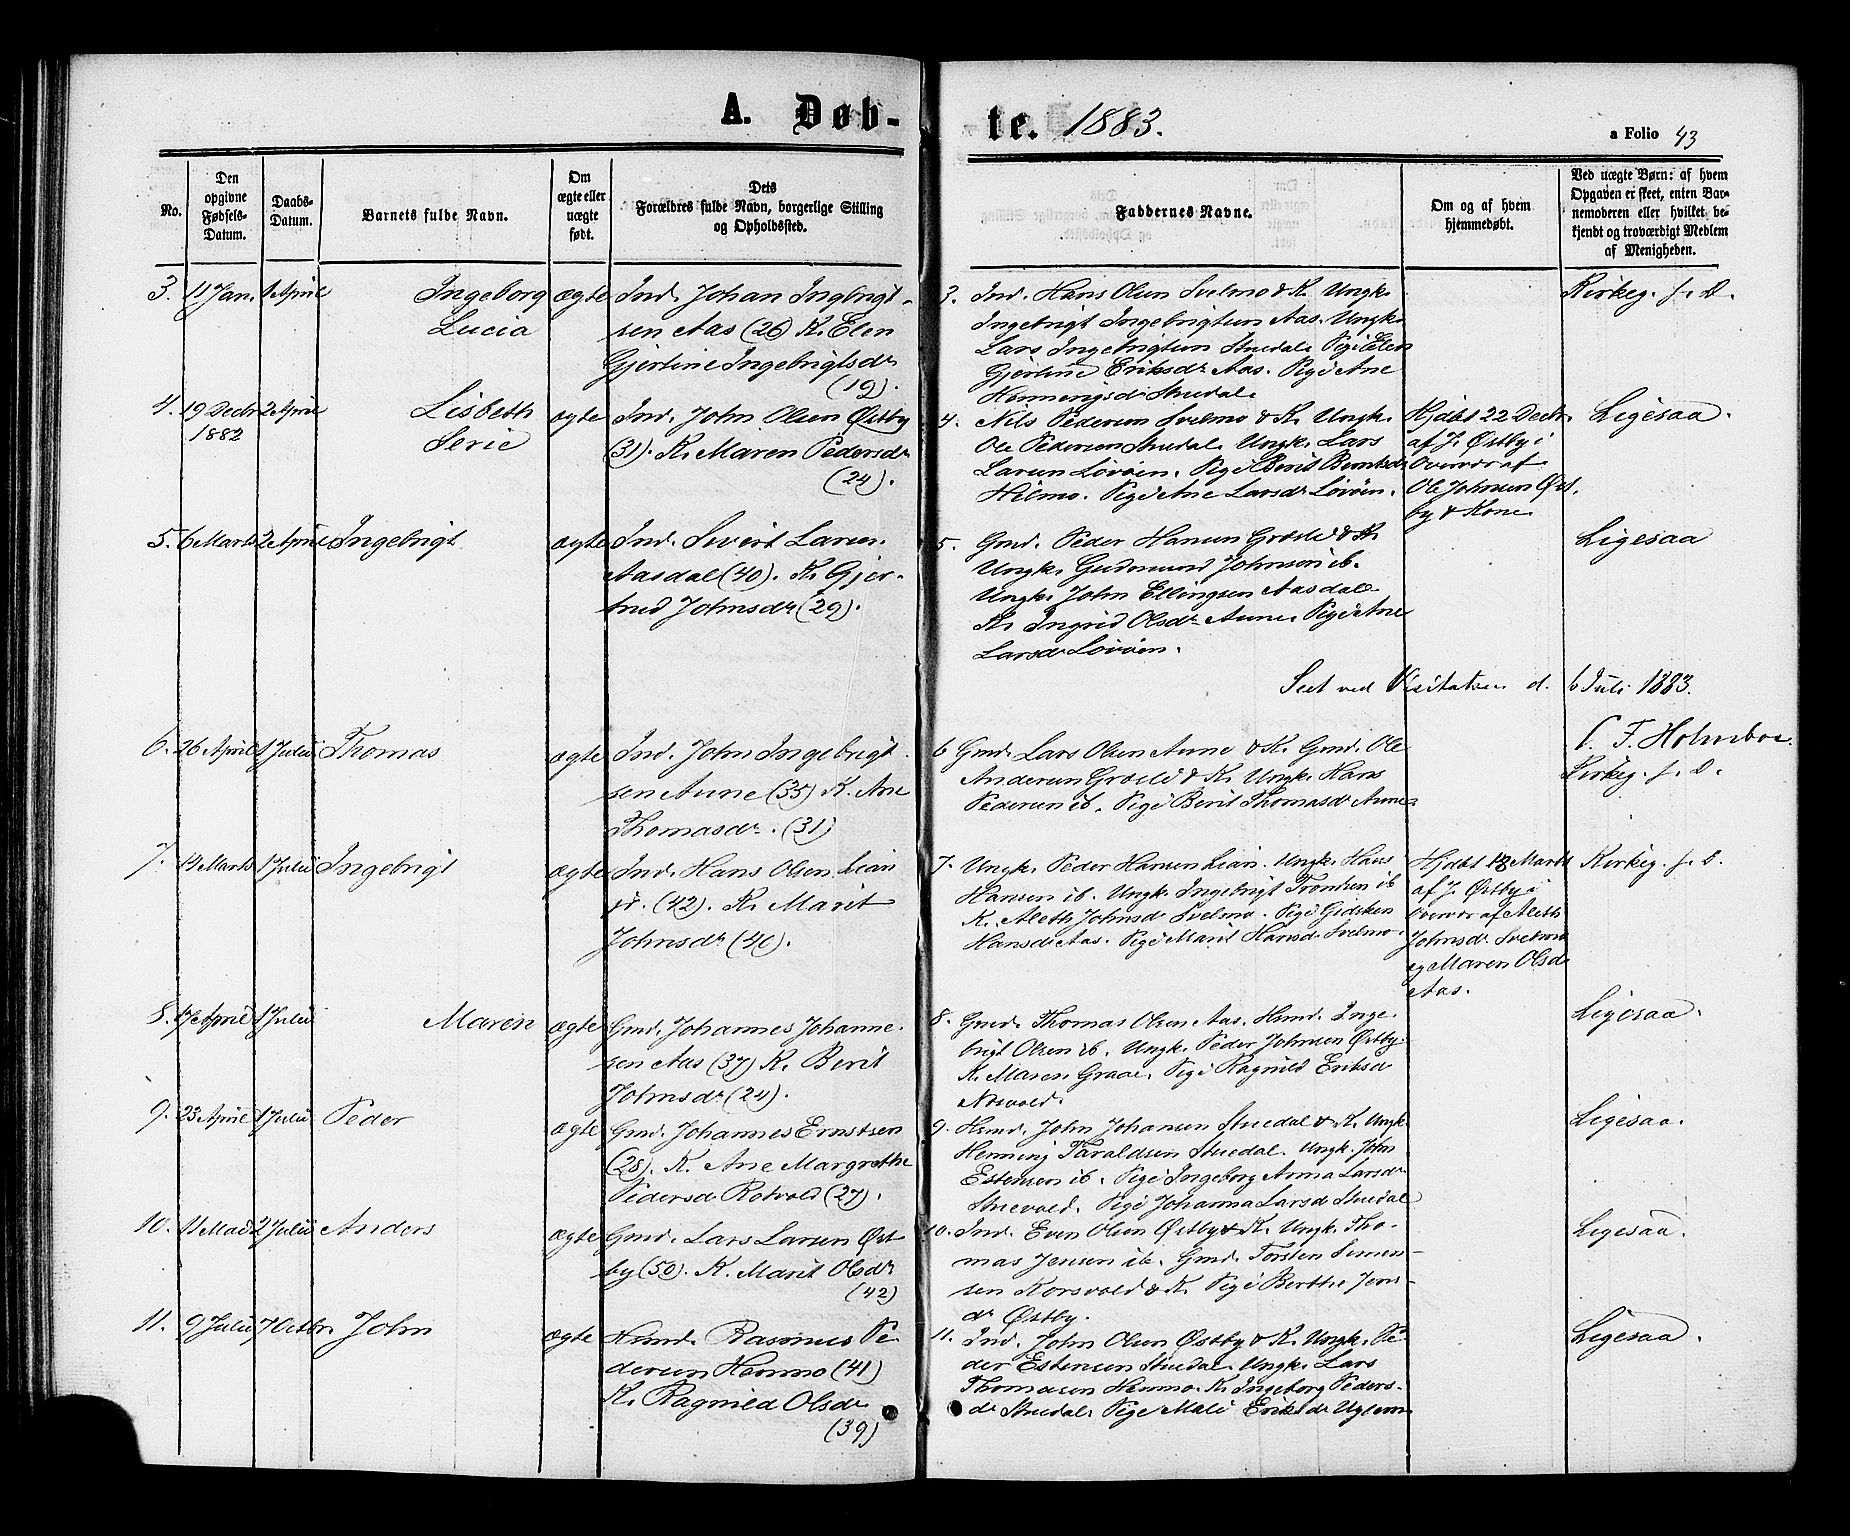 A. Døb-
te. 1883.
a Folio 43
No.
Den
opgivne
Fødsels-
Datum.
Daabs-
Datum.
Barnets fulde Navn.
Om
ægte eller
uægte
født.
Dets
Forældres fulde Navn, borgerlige Stilling
og Opholdssted.
Faddernes Navne.
Om og af hvem
hjemmedøbt.
Ved uægte Børn: af hvem
Opgaven er skeet, enten Bar-
nemoderen eller hvilket be-
kjendt og troværdigt Medlem
af Menigheden.
3. 11 Jan. 1 April Ingeborg
Lucia
ægte
Ind. Johan Ingbrigt-
sen Aas (26) K. Elen
Gjertine Ingebrigtsdr
(19).
3. Ind. Hans Olsen Svelmo & K. Ungk.
Ingebrigt Ingebrigtsen Aas. Ungk.
Lars Ingebrigtsen Stuedal. Pige Elen
Gjertine Eriksdr Aas. Pige Ane
Henningsdr Stuedal.
Kirkeg. f. D.
4. 19 Decbr 2 April
1882
Lisbeth
Serie
ægte
Ind. John Olsen Østby
(31). K. Maren Pedersdr
(24).
4. Nils Pedersen Svelmo & K. Ungk.
Ole Pedersen Stuedal. Ungk. Lars
Larsen Løvøen. Pige Berit Berntsdr
Hilmo. Pige Ane Larsdr Løvøen.
Hjdøbt 22 Decbr.
af J. Østby i
Overvær af
Ole Johnsen Øst-
by & Kone
Ligesaa.
5. 6 Marts 2 April Ingebrigt
ægte
Ind. Sivert Larsen
Aasdal (40). K. Gjer-
trud Johnsdr (29).
5. Gmd. Peder Hansen Græsli & K.
Ungk. Gudmund Johnson ib.
Ungk. John Ellingsen Aasdal
K. Ingrid Olsdr Aune. Pige Ane
Larsdr Løvøen.
Ligesaa
Seet ved Visitatsen d. 6 Juli 1883.
C. F. Holmboe.
6. 26 April 1 Julii Thomas
ægte
Ind. John Ingebrigt-
sen Aune (35) K. Ane
Thomasdr. (31)
6 Gmd. Lars Olsen Aune & K. Gmd. Ole
Andersen Græsli & K. Ungk. Hans
Pedersen ib. Pige Berit Thomasdr Aune
Kirkeg. f. D.
7. 14 Marts 1 Julii Ingebrigt
ægte
Ind. Hans Olsen Lian
jr. (42). K. Marit
Johnsdr (40).
7. Ungk. Peder Hansen Lian. Ungk. Hans
Hansen ib. Ungk. Ingebrigt Trondsen ib
K. Aleth Johnsd Svelmo. Pige Gidsken
Hansdr Aas. Pige Marit Hansd. Svelmo.
Hjdøbt 18 Marts
af J. Østby i
Overvær af Aleth
Johnsdr Svelmo
og Maren Olsd
Aas.
Kirkeg. f. D.
8. 17 April 1 Julii Maren
ægte
Gmd. Johannes Johanne-
sen Aas (37) K. Berit
Johnsdr (24).
8. Gmd. Thomas Olsen Aas. Husmd. Inge-
brigt Olsen ib. Ungk. Peder Johnsen Østby.
K. Maren Graae. Pige Ragnild Eriksd
Nesvold.
Ligesaa.
9. 23 April 1 Julii Peder
ægte
Gmd. Johannes Ernstsen
(28). K. Ane Margrethe
Pedersd Rotvold (27).
9. Husmd. John Johansen Stuedal & K. Ungk
Henning Taraldsen Stuedal. Ungk. John
Estensen ib. Pige Ingeborg Anna Larsdr
Stuevold. Pige Johanna Larsd Stuedal
Ligesaa.
10. 11 Mai 2 Julii Anders
ægte
Gmd. Lars Larsen Øst-
by (50). K. Marit Olsdr
(42)
10. Ind. Even Olsen Østby & K. Ungk. Tho-
mas Jensen ib. Gmd. Torsten Simen-
sen Korsvold & K. Pige Berthe Jens-
dr Østby.
Ligesaa.
11. 9 Julii 7 Octbr. John
ægte
Husmd. Rasmus Pe-
dersen Hemmo (41)
K. Ragnild Olsdr
(39)
11. Ind. John Olsen Østby & K. Ungk. Pe-
der Estensen Stuedal. Ungk. Lars
Thomasen Hemmo. K. Ingeborg Peders-
dr Stuedal. Pige Mali Eriksdr Uglem
Ligesaa.